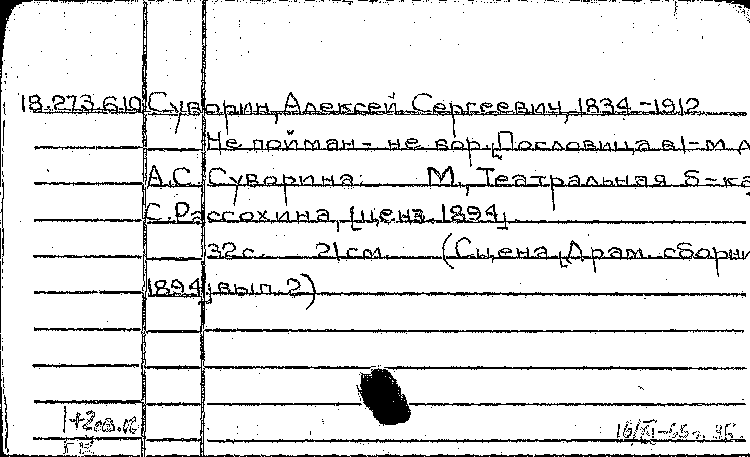 18.273.610 Суворин, Алексей Сергеевич, 1834-1912
Не пойман - не вор. [Пословица в 1-м д
А.С. Суворина. М., Театральная б-ка
С. Рассохина, [ценз. 1894].
32 с. 21 см. (Сцена. [Драм. сборни
1894] вып. 2)
16/XI-65 г.